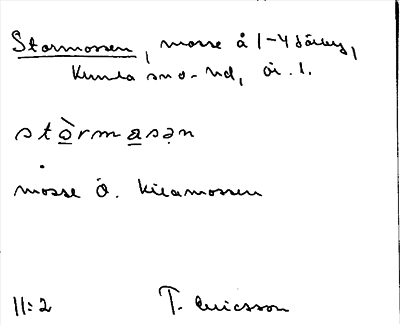 Stormossen, mosse å 1-4 Säby,
Kumla sn o. hd, öi. 1.
stòrmasən
mosse Ö. Kilamossen
11:2 T. Ericsson